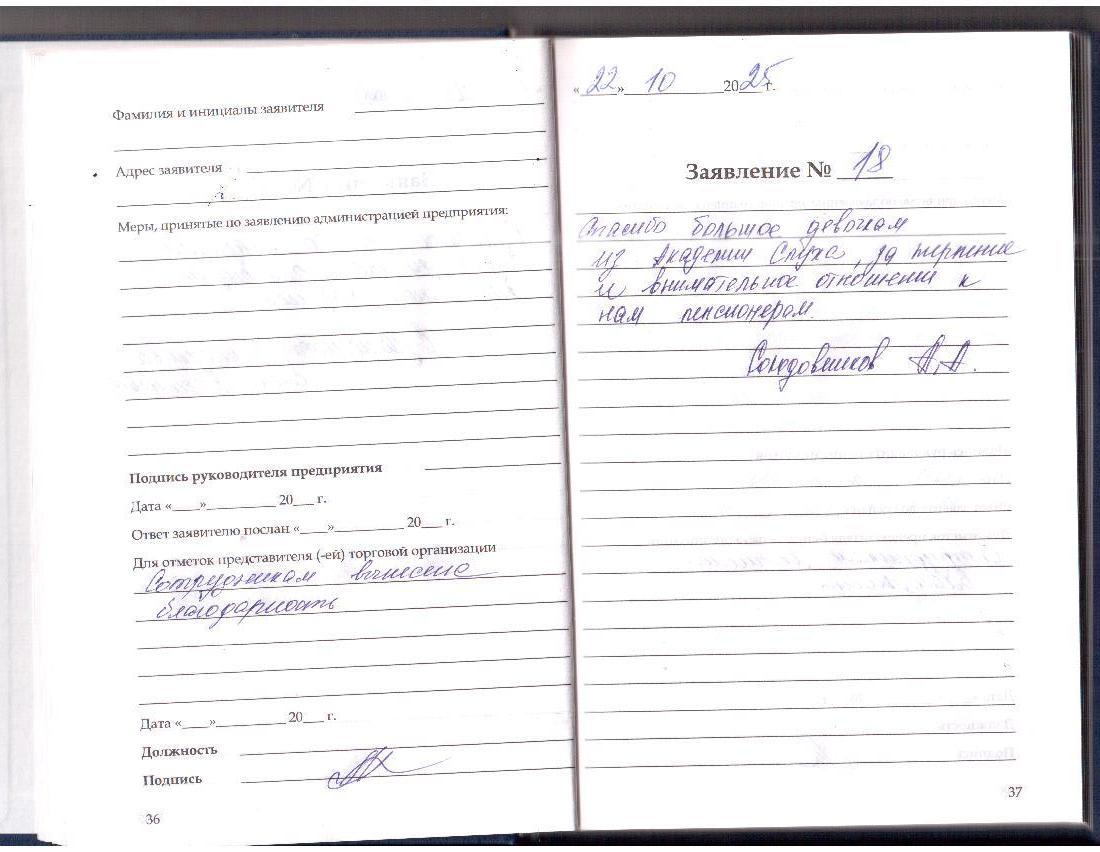 Фамилия и инициалы заявителя
Адрес заявителя
Меры, принятые по заявлению администрацией предприятия:
Подпись руководителя предприятия
Дата «____»__________ 20___ г.
Ответ заявителю послан «____»__________ 20___ г.
Для отметок представителя (-ей) торговой организации
Сотрудникам вынесена
благодарность
Дата «____»__________ 20___ г.
Должность
Подпись
36
«22» 10 2025 г.
Заявление № 18
Спасибо большое девочкам
из Академии Слуха, за терпение
и внимательное отношении к
нам пенсионерам.
Солодовников А.А.
37